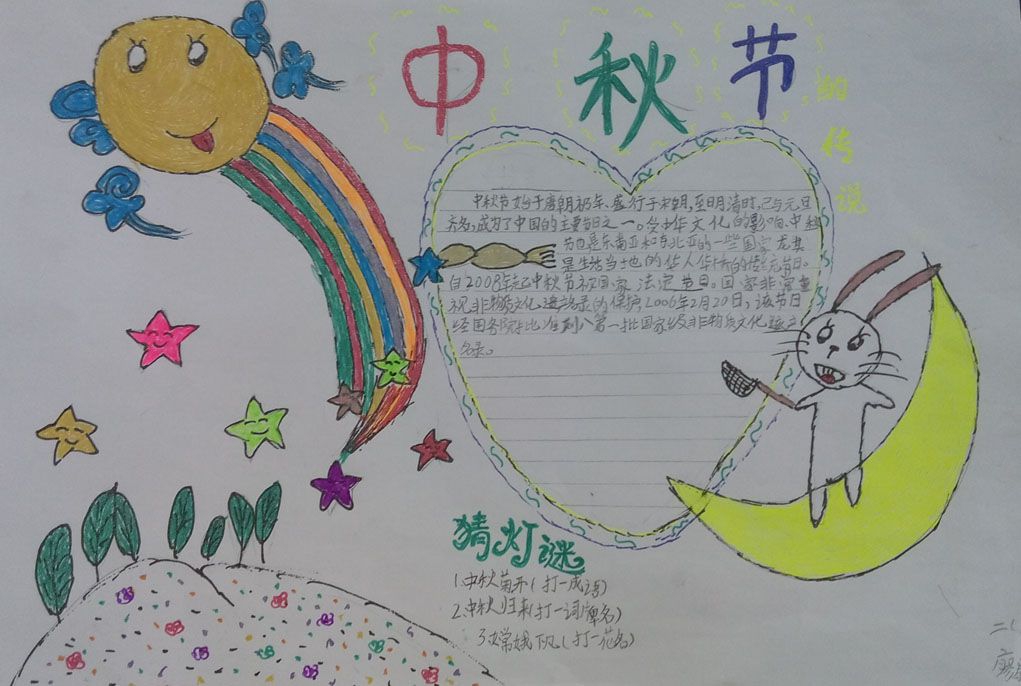 中秋节
的传说
中秋节始于唐朝初年、盛行于宋朝,至明清时,已与元旦
齐名,成为了中国的主要节日之一。受中华文化的影响、中秋
节也是东南亚和东北亚的一些国家尤其
是生活当地的华人华侨的传统节日。
自2008年起中秋节被国家法定节日。国家非常重
视非物质文化遗产的保护2006年2月20日,该节日
经国务院批准列入第一批国家级非物质文化
名录。
猜灯谜
1.中秋菊开(打一成语)
2.中秋归来(打一词牌名)
3.嫦娥下凡(打一花名)
二(